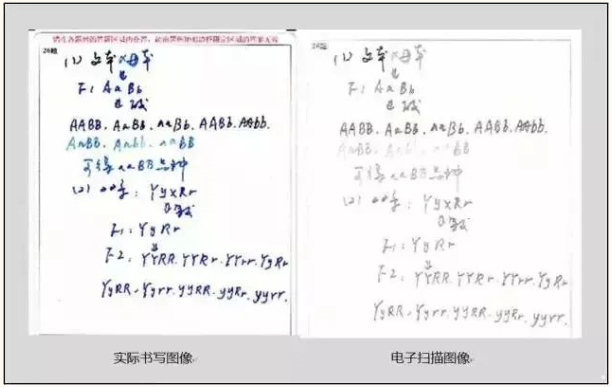 24题
(1) 父本×母本
↓
F1 AaBb
自交
AABB、AaBB、aaBb、AABb、AAbb、
AaBB、Aabb、aaBB
可得aaBB品种
(2) YyxRr
F1: YyRr
F2: YYRR、YYRr、YYrr、YyRr
YyRR、Yyrr、yyRR、yyRr、yyrr、
24题
(1) 父本×母本
↓
F1 AaBb
自交
AABB、AaBB、aaBb、AABb、AAbb、
AaBB、Aabb、aaBB
可得aaBB品种
(2) YyxRr
F1: YyRr
F2: YYRR、YYRr、YYrr、YyRr
YyRR、Yyrr、yyRR、yyRr、yyrr、
实际书写图像
电子扫描图像